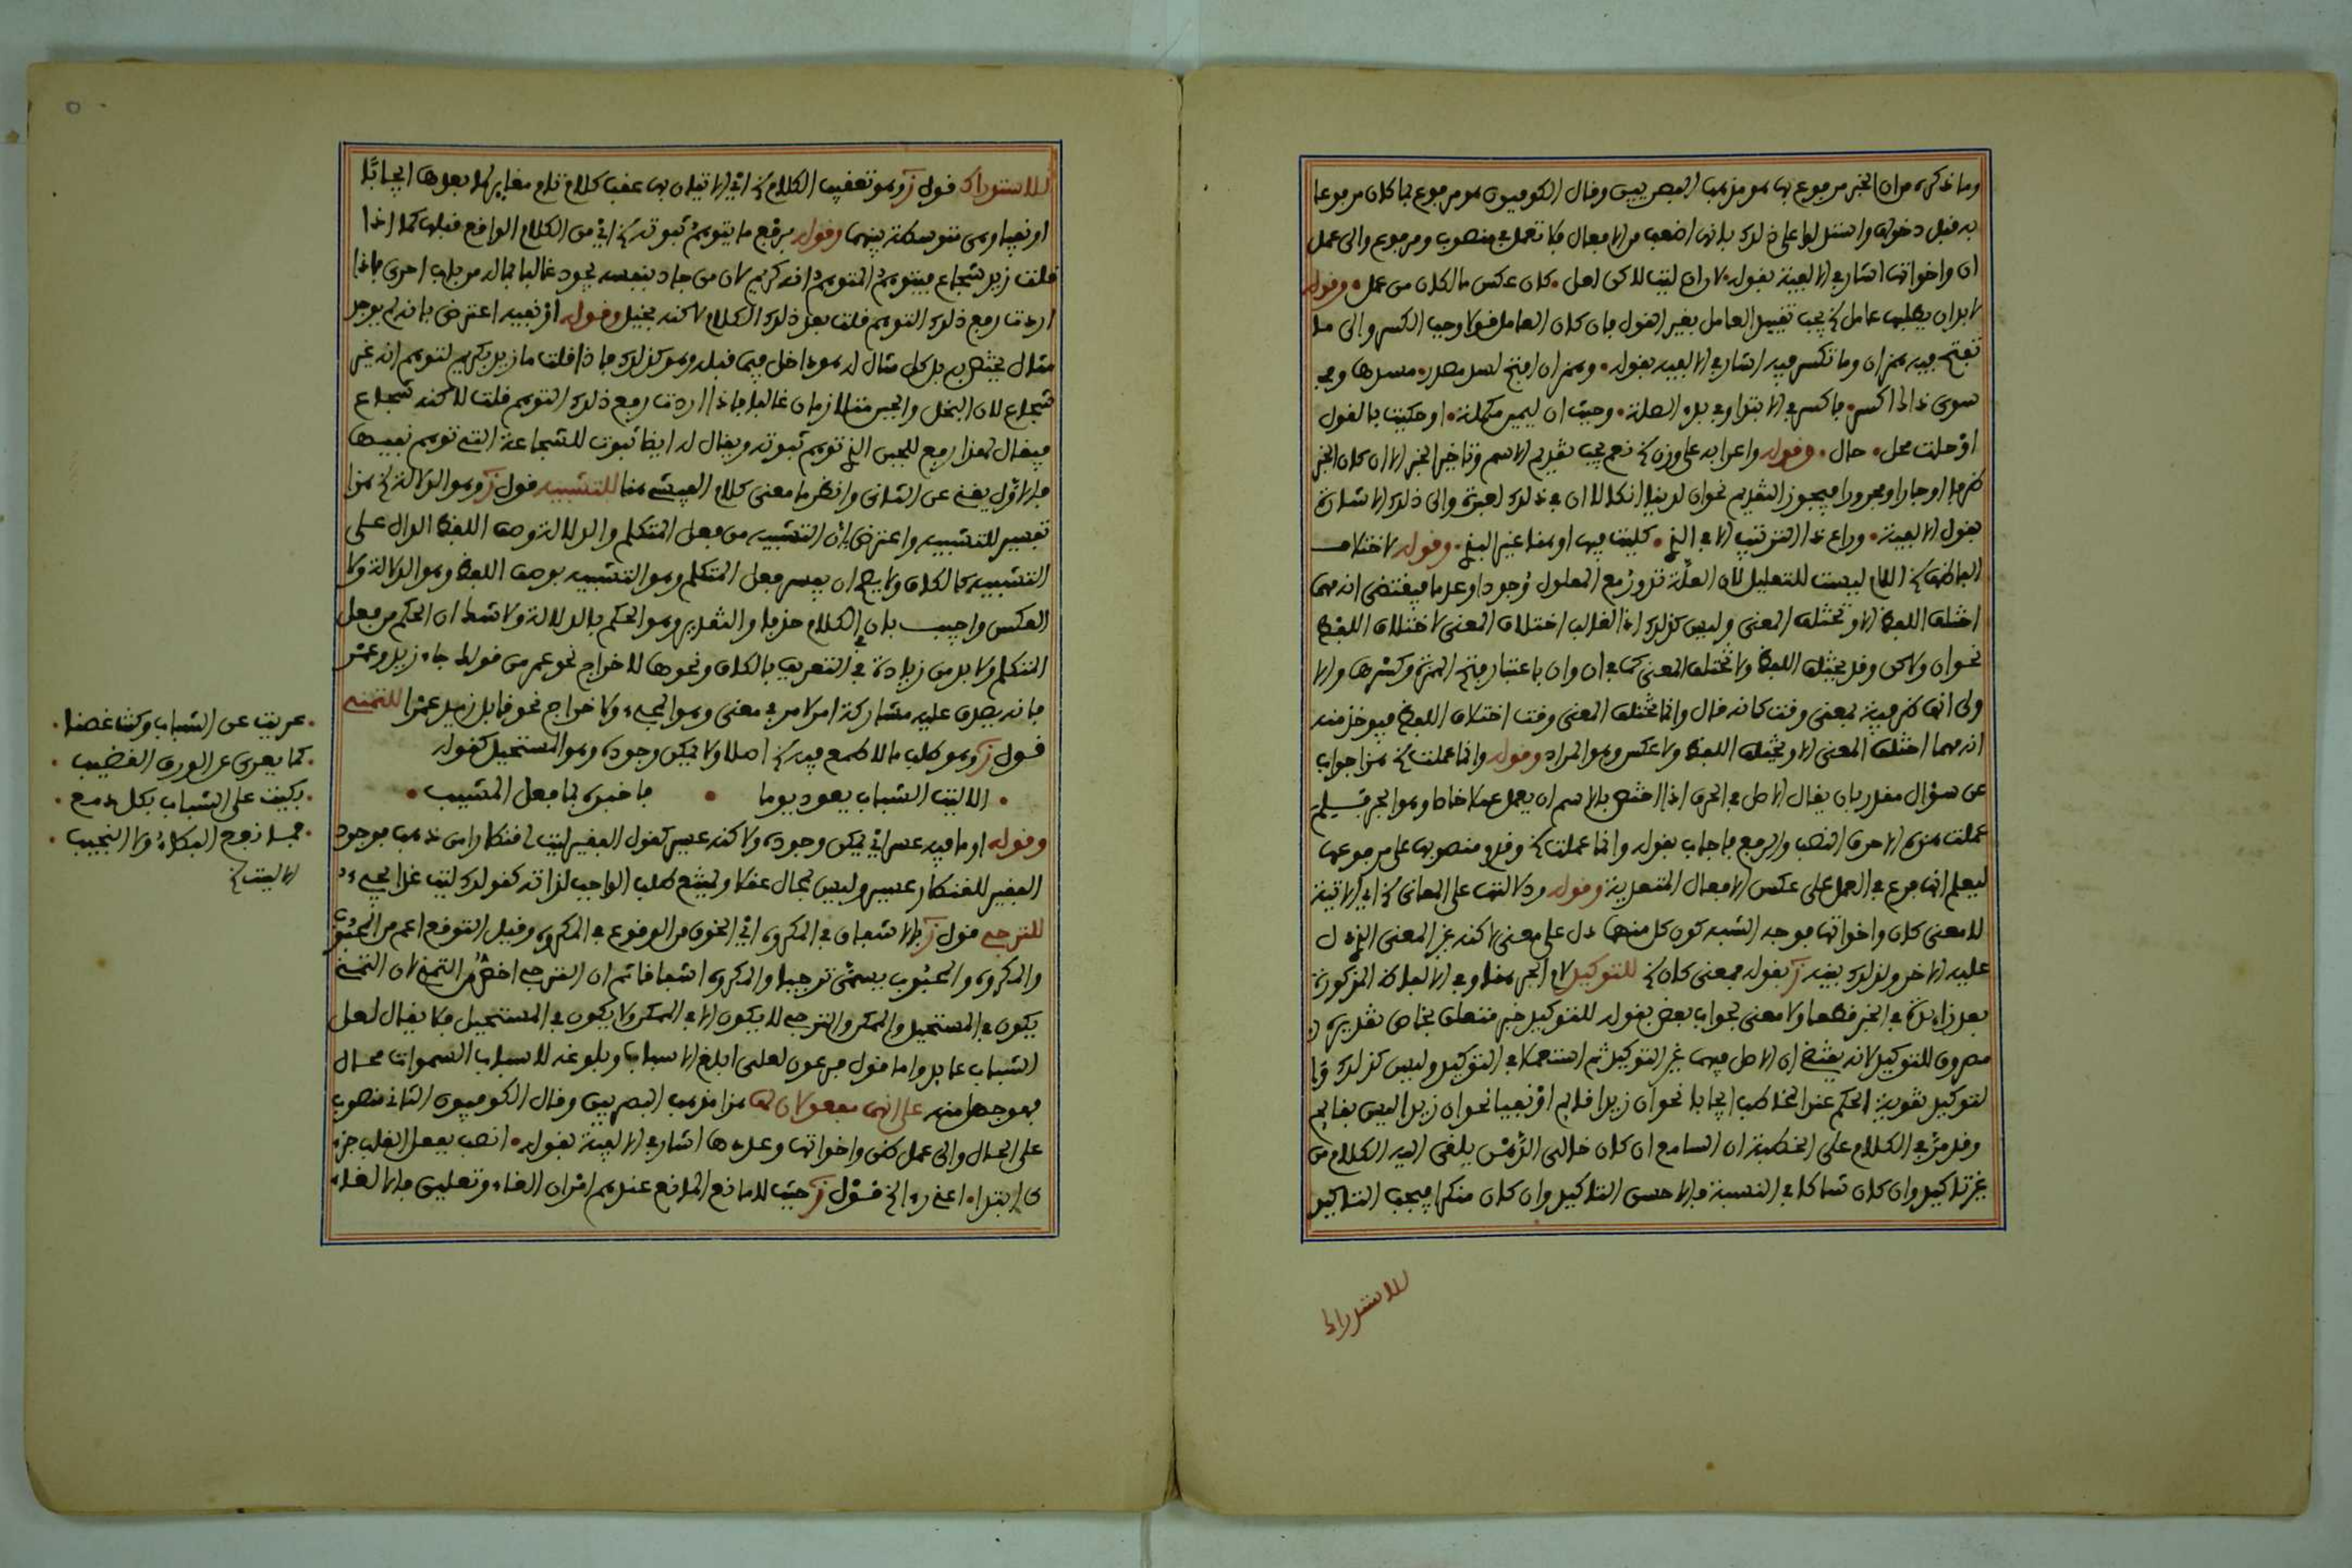 وما ذكره من ان الخبر مرفوع بها هو مذهب البصريين وقال الكوفيون هو مرفوع بما كان مرفوعا
به قبل دخولها واستدلوا على ذلك بانها اضعف من الافعال فلا تعمل في منصوب ومرفوع والى عمل
ان واخواتها اشار في الالفية بقوله • لان ان ليت لاكن لعل • كان عكس ما لكان من عمل • وقوله
لابد ان يطلبها عامل الخ يجب تقييد العامل بغير القول فان كان العامل قولا وجب الكسر والى ما
تفتح فيه همز ان وما تكسر فيه اشار في الالفية بقوله • وهمز ان افتح لسد مصدر • مسدها وفي
سوى ذاك اكسر • فاكسر في الابتدا وفي بدء الصلة • وحيث ان ليمين مكملة • او حكيت بالقول
او حلت محل • حال • وقوله واعرابه على وزن الخ نعم يجب تقديم الاسم وتاخير الخبر الا ان كان الخبر
ظرفا او جارا ومجرورا فيجوز التقديم نحو ان لدينا انكالا ان في ذلك لعبرة والى ذلك الاشارة
بقول الالفية • وراع ذا الترتيب الا في الذي • كليت فيها او هنا غير البذي • وقوله لاختلاف
الفاظها الخ اللام ليست للتعليل لان العلة تدور مع المعلول وجودا وعدما فيقتضي انه مهما
اختلف اللفظ الا وتختلف المعنى وليس كذلك اذ الغالب اختلاف المعنى لاختلاف اللفظ
نحو ان ولاكن وقد يختلف اللفظ ولا تختلف المعنى كما في ان وان باعتبار فتح الهمزة وكسرها والا
ولى انها ظرفية بمعنى وقت كانه قال وانما تختلف المعنى وقت اختلاف اللفظ فيوخذ منه
انه مهما اختلف المعنى الا ويختلف اللفظ ولا عكس وهو المراد وقوله وانما عملت الخ هذا جواب
عن سؤال مقدر بان يقال الاصل في الحرف اذا اختص بالاسم ان يعمل عملا خاصا وهو الجر فلم
عملت هذه الاحرف النصب والرفع فاجاب بقوله وانما عملت الخ وقدم منصوبها على مرفوعها
ليعلم انها فرع في العمل على عكس الافعال المتعدية وقوله ودلالتها على المعاني الخ اي الاتية
للمعنى كان واخواتها فوجه الشبه كون كل منهما دل على معنى لاكنه غير المعنى الذي دل
عليه الاخر ولذلك بينه ز بقوله فمعنى كان الخ للتوكيد لام الجر هنا وفي الالفاظ المذكورة
بعد زائدة في الخبر قطعا ولا معنى لجواب بعض بقوله للتوكيد خبر متعلق بخاص تقديره
مصروف للتوكيد لانه يقتضي ان الاصل فيهما غير التوكيد ثم استعملا في التوكيد وليس كذلك
لتوكيد تقوية الحكم عند المخاطب ايجابا نحو ان زيدا قايم او نفيا نحو ان زيدا ليس بقايم
وقد مر في الكلام على الخطبة ان السامع ان كان خالي الذهن يلقى اليه الكلام من
غير تاكيد وان كان شاكا في النسبة فالاحسن التاكيد وان كان منكرا فيجب التاكيد
للاستدراك
للاستدراك قول ز وهو تعقيب الكلام الخ اي الاتيان بها عقب كلام تام مغاير لما بعدها ايجابا
او نفيا وهي متوسطة بينهما وقوله برفع ما يتوهم ثبوته الخ اي من الكلام الواقع قبلها كما اذا
قلت زيد شجاع فيتوهم المتوهم انه كريم لان من جاد بنفسه يجود غالبا بماله من باب احرى فاذا
اردت رفع ذلك التوهم قلت بعد ذلك الكلام لاكنه بخيل وقوله او نفيه اعترض بانه لم يوجد
مثال يختص به بل كل مثال له هو داخل فيما قبله وهو كذلك فاذا قلت ما زيد بكريم لتوهم انه غير
شجاع لان البخل والجبن متلازمان غالبا فاذا اردت رفع ذلك التوهم قلت لاكنه شجاع
فيقال هذا رفع للجبن الذي توهم ثبوته ويقال له ايضا ثبوت للشجاعة التي توهم نفيها
فالاول يغني عن الثاني وانظر ما معنى كلام الفيشي هنا للتشبيه قول ز وهو الدلالة الخ هذا
تفسير للتشبيه واعترض بان التشبيه من فعل المتكلم والدلالة وصف اللفظ الدال على
التشبيه كالكاف ولا يصح ان يفسر فعل المتكلم وهو التشبيه بوصف اللفظ وهو الدلالة ولا
العكس واجيب بان في الكلام حذفا والتقدير وهو الحكم بالدلالة ولا شك ان الحكم من فعل
المتكلم ولا بد من زيادة في التعريف بالكاف ونحوها للاخراج نحو عمر من قولك جاء زيد وعمر
فانه يصدق عليه مشاركة امر لامر في معنى وهو المجيء ولاخراج نحو قابل زيد عمرا للتمني
قول ز وهو طلب ما لا طمع فيه الخ اصلا ولا يمكن وجوده وهو المستحيل كقوله
• الا ليت الشباب يعود يوما • فاخبره بما فعل المشيب •
وقوله او ما فيه عسر اي يمكن وجوده ولاكنه عسير كقول الفقير ليت لي قنطارا من ذهب فوجود
الفقير للقنطار عسير وليس بمحال عقلا ويمتنع طلب الواجب لذاته كقولك ليت غدا يجيء
للترجي قول ز بالاشفاق في المكروه اي الخوف من الوقوع في المكروه وقيل التوقع اعم من المحبوب
والمكروه والمحبوب يسمى ترجيا والمكروه اشفاقا ثم ان الترجي اخص من التمني لان التمني
يكون في المستحيل والممكن والترجي لا يكون الا في الممكن ولا يكون في المستحيل فلا يقال لعل
الشباب عايد واما قول فرعون لعلي ابلغ الاسباب وبلوغه لاسباب السموات محال
فهو جهل منه على انهما مفعولان لها هذا مذهب البصريين وقال الكوفيون الثاني منصوب
على الحال والى عمل ظن واخواتها وعددها اشار في الالفية بقوله • انصب بفعل القلب جزءي
ابتدا • اعني رءا الخ قول ز حيث لا مانع المانع عندهم اثران الغاء وتعليق فالالغاء
• عريت عن الشباب وكنت غضا •
• كما يعرى عن الورق القضيب •
• بكيت على الشباب بكل دمع •
• فما نفع البكاء ولا النحيب •
الا ليت الخ